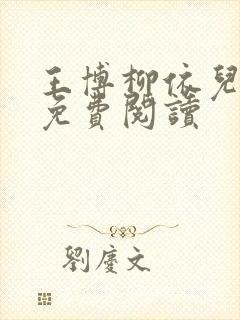 王博柳依兒
免費閱讀
劉慶文